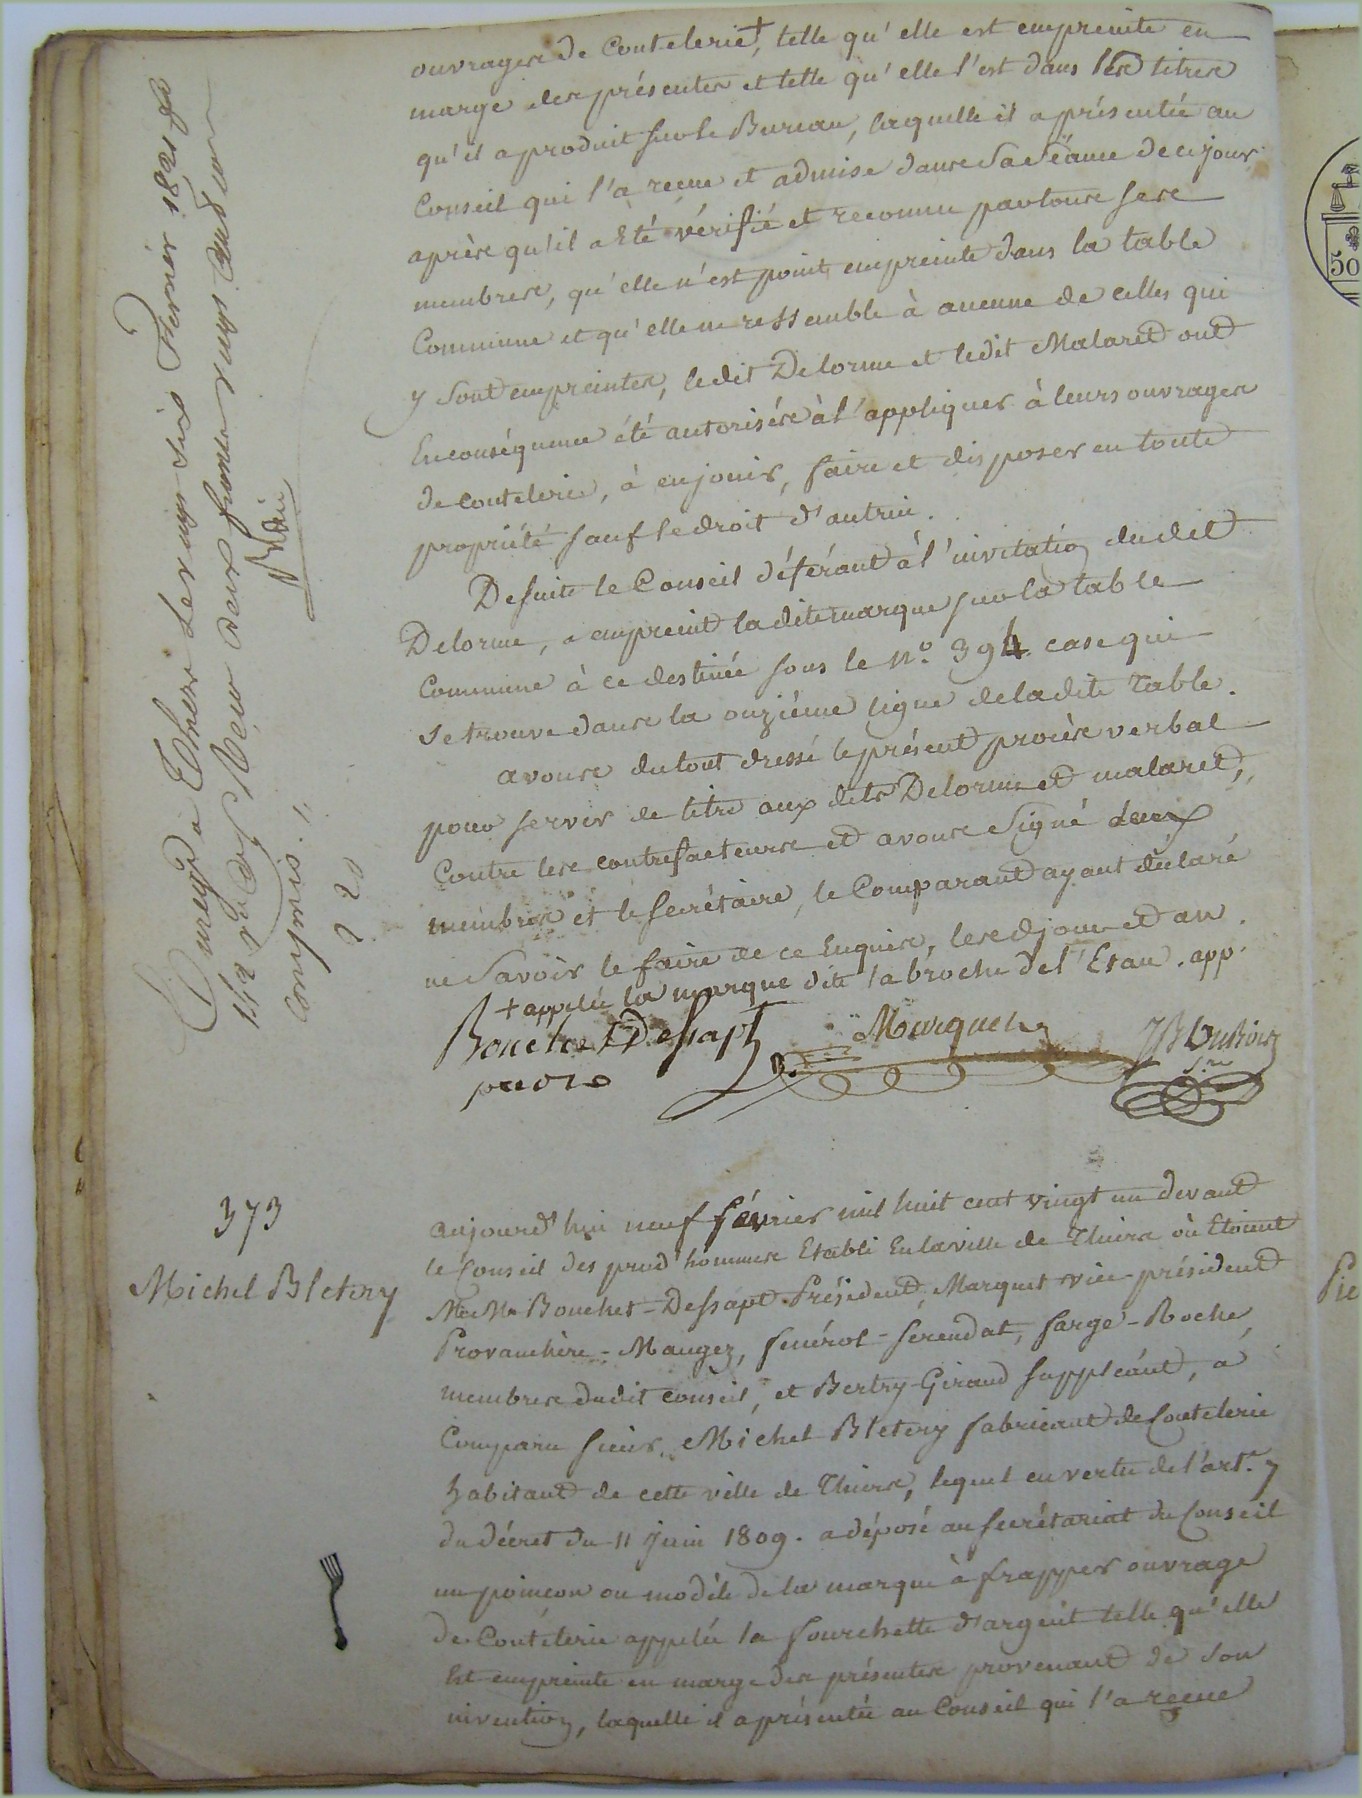 ouvrages de Coutelerie +, telle qu'elle est empreinte en
marge des présentes et telle qu'elle l'est dans les titres
qu'il a produit sur le Bureau, laquelle il a présentée au
Conseil qui l'a reçue et admise dans sa séance de ce jour
après qu'il a été vérifié et reconnu par tous ses
membres, qu'elle n'est point empreinte dans la table
Commune et qu'elle ne ressemble à aucune de celles qui
y sont empreintes, ledit Delorme et ledit Malaret ont
En conséquence été autorisés à l'appliquer à leurs ouvrages
de coutelerie, à en jouir, faire et disposer en toute
propriété sauf le droit d'autrui.
De suite le Conseil déférant à l'invitation dudit
Delorme, a empreint ladite marque sur la table
Commune à ce destinée sous le N.º 394 case qui
se trouve dans la onzième ligne de ladite Table.
avons du tout dressé le présent procès verbal
pour servir de titre aux dits Delorme et malaret,
Contre les contrefacteurs et avons signé deux
membres et le secrétaire, le Comparant ayant déclaré
ne savoir le faire de ce Enquis, lesd jour et an.
+ appelée la marque dite la broche de l'Etau. app.
Bouchet Dessapt Marquet JB
prdt Sre
Enregé a Thiers Le vingt six Fevrier 1821 fo
Reçu deux francs vingt
compris.
2 20
373
Michel Bletery
aujourd'hui neuf février mil huit cent vingt un devant
le Conseil des prud'hommes Etabli En la ville de Thiers où Etoient
MM Bouchet-Dessapt Président, Marquet vice-président
Provanchère-Mauger, fenérol-ferendat, sarge-Roche,
membres dudit conseil, et Bertry-Giraud suppléant, a
Comparu sieur Michel Bletery fabricant de Coutelerie
habitant de cette ville de Thiers, lequel en vertu de l'art.e 7
du décret du 11 Juin 1809. a déposé au secrétariat du Conseil
un poinçon ou modèle de la marque à frapper ouvrage
de Coutelerie appelée la fourchette d'argent telle qu'elle
Est empreinte en marge des présentes provenant de son
invention, laquelle il a présentée au Conseil qui l'a reçue
50
Pie